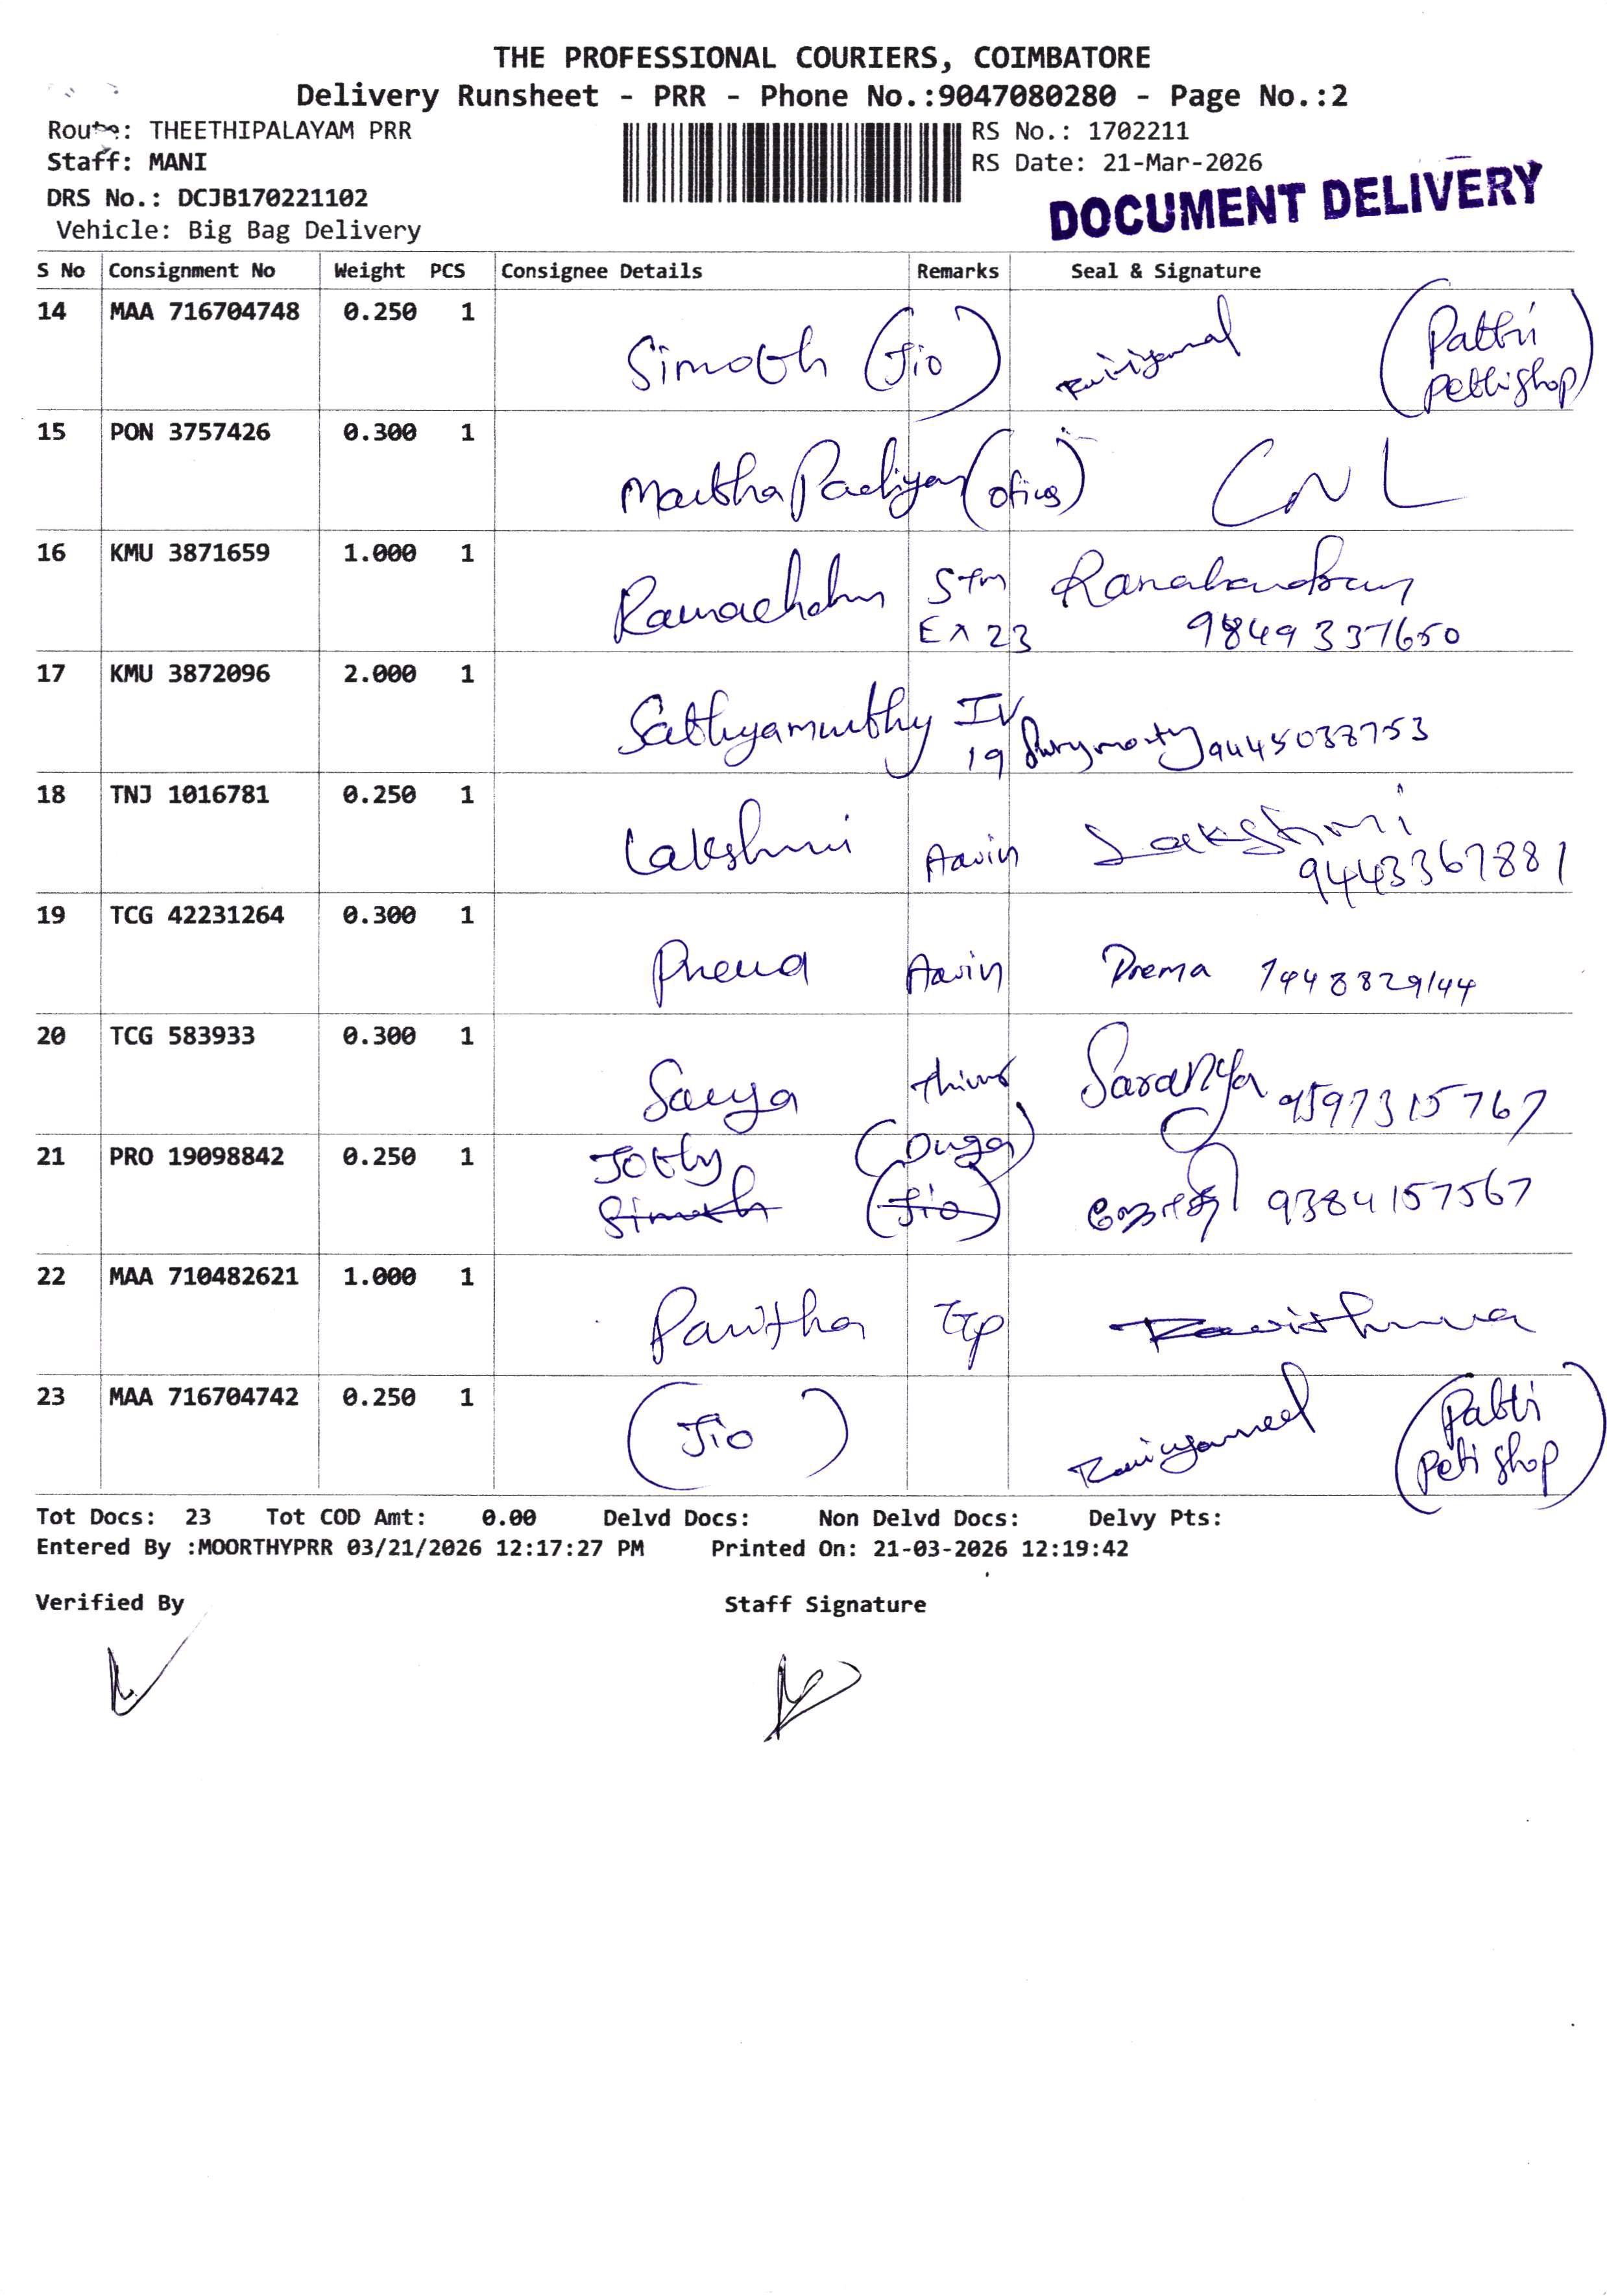 THE PROFESSIONAL COURIERS, COIMBATORE
Delivery Runsheet - PRR - Phone No.:9047080280 - Page No.:2
Route: THEETHIPALAYAM PRR
RS No.: 1702211
Staff: MANI
RS Date: 21-Mar-2026
DRS No.: DCJB170221102
DOCUMENT DELIVERY
Vehicle: Big Bag Delivery
S No Consignment No Weight PCS Consignee Details Remarks Seal & Signature
14 MAA 716704748 0.250 1
Simoth (Jio) (Pattri
pettishop)
15 PON 3757426 0.300 1
CNL
16 KMU 3871659 1.000 1
9849337650
17 KMU 3872096 2.000 1
Sathyamurthy IV
19
18 TNJ 1016781 0.250 1
Lakshmi Aavin Lakshmi
9443367881
19 TCG 42231264 0.300 1
Aavin Prema
20 TCG 583933 0.300 1
Saranya 9597315767
21 PRO 19098842 0.250 1
Jothy
(Jio) 9384157567
22 MAA 710482621 1.000 1
23 MAA 716704742 0.250 1
(Jio) (Patti
peti shop)
Tot Docs: 23 Tot COD Amt: 0.00 Delvd Docs: Non Delvd Docs: Delvy Pts:
Entered By :MOORTHYPRR 03/21/2026 12:17:27 PM Printed On: 21-03-2026 12:19:42
Verified By Staff Signature